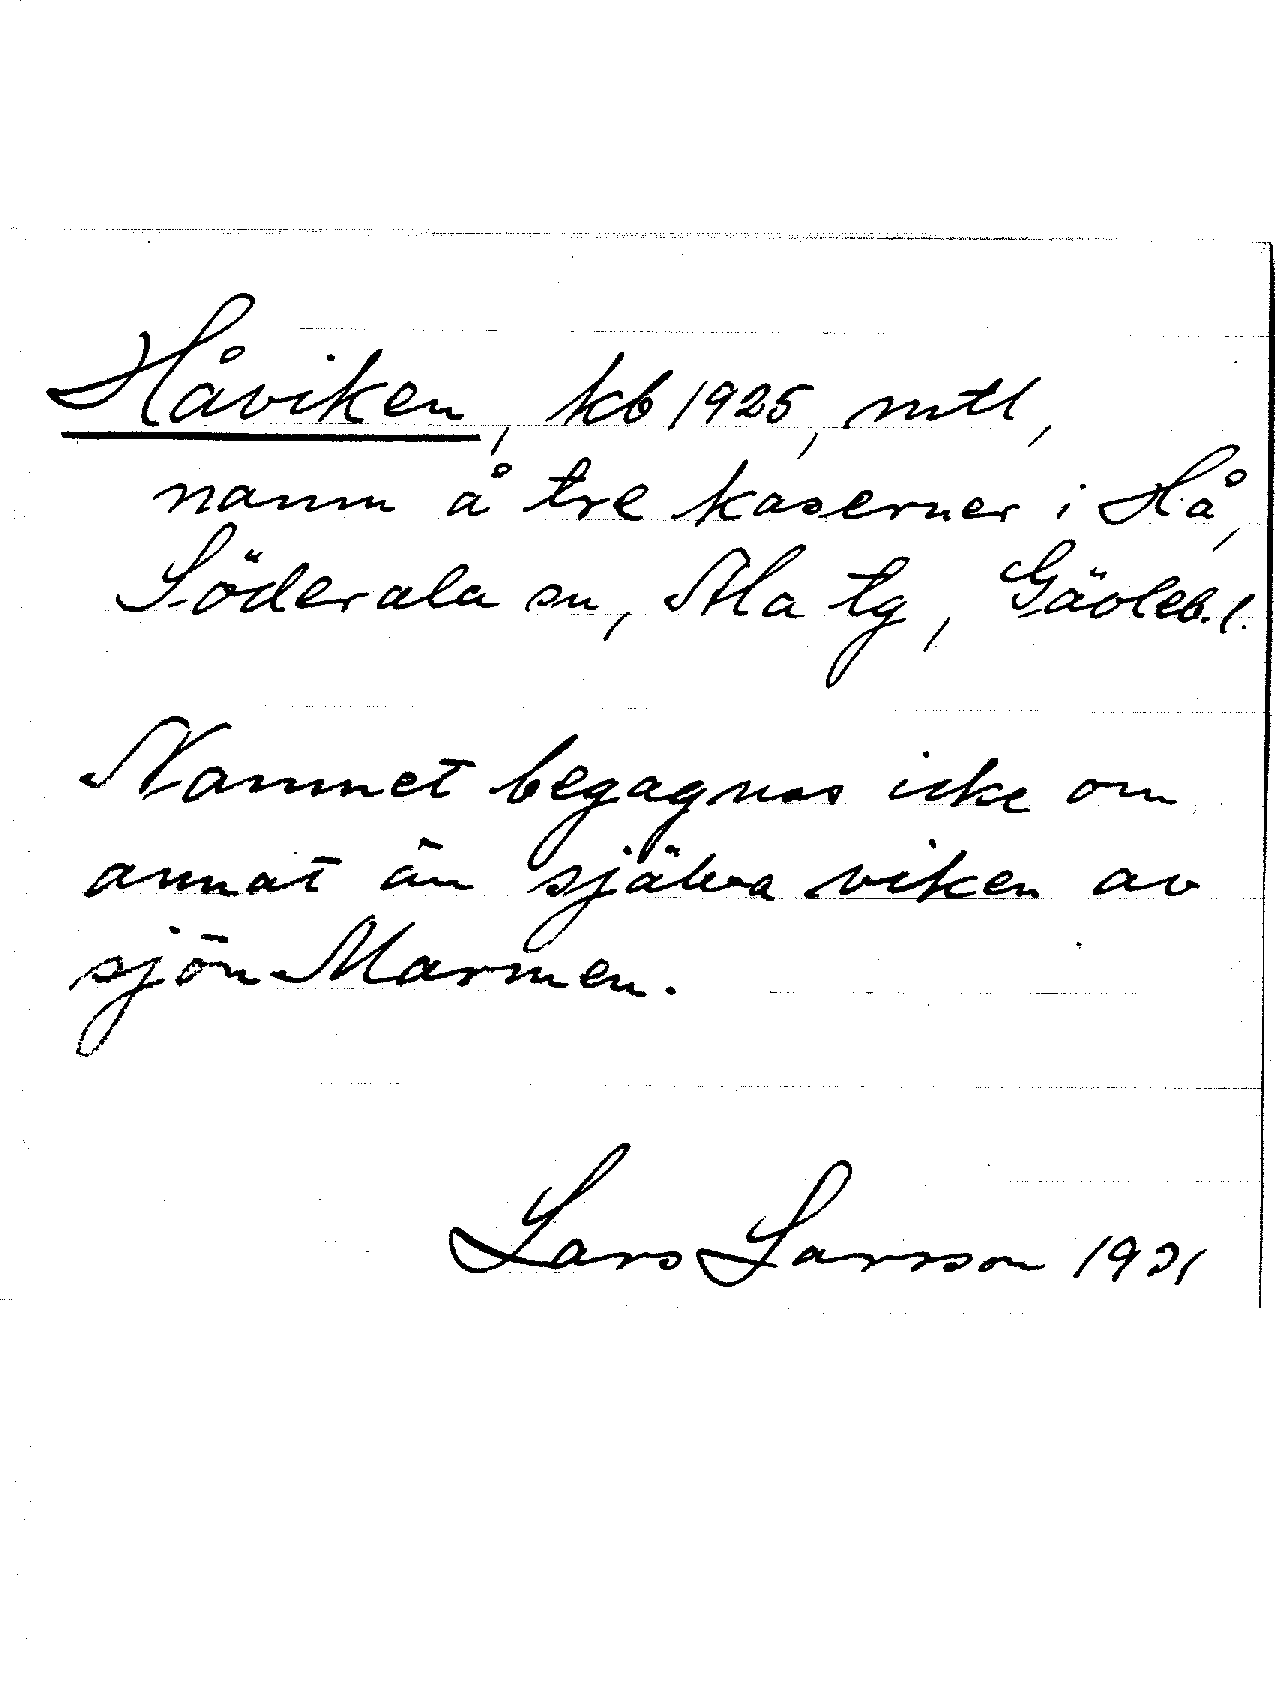 Håviken, kb 1925, mtl,
namn å tre kaserner i Hå,
Söderala sn, Ala tg, Gävleb. l.
Namnet begagnas icke om
annat än själva viken av
sjön Marmen.
Lars Larsson 1931